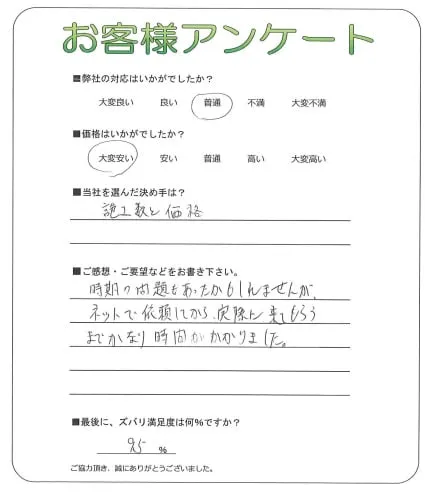 お客様アンケート
■弊社の対応はいかがでしたか？
大変良い 良い 普通 不満 大変不満
■価格はいかがでしたか？
大変安い 安い 普通 高い 大変高い
■当社を選んだ決め手は？
施工数と価格
■ご感想・ご要望などをお書き下さい。
時期の問題もあったかもしれませんが、
ネットで依頼してから、実際に来てもらう
までかなり時間がかかりました。
■最後に、ズバリ満足度は何％ですか？
95 ％
ご協力頂き、誠にありがとうございました。